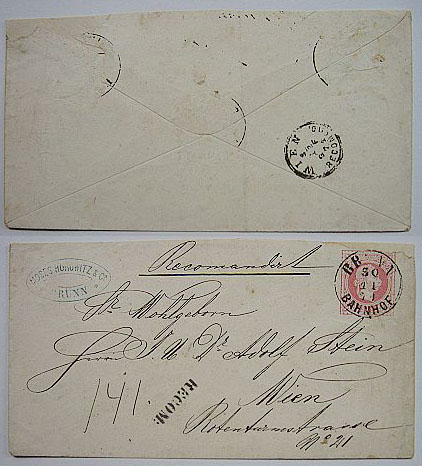 WIEN
RECOM
Recomandirt
MOSES HOROWITZ & CO
BRÜNN
BRÜNN
30
11
BAHNHOF
Sr Wohlgeborn
Herrn J U Dr Adolf Stein
Wien
Rotenturmstrasse
No 21
141.
RECOM: